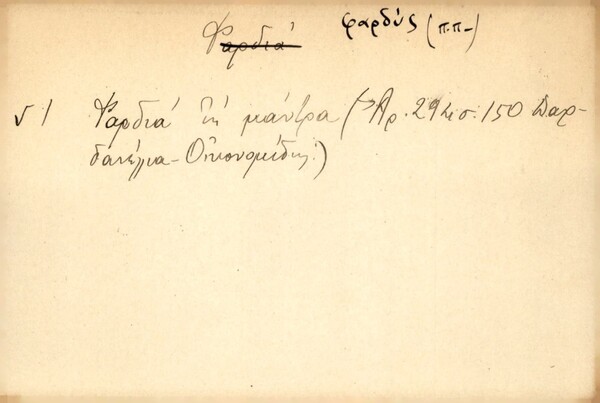 Φαρδιά φαρδύς (π.π-)
√ 1 Φαρδιά ἡ μάντρα (Ἀρ. 291 σ. 150 Δαρ-
δανέλλια - Οἰκονομίδης)